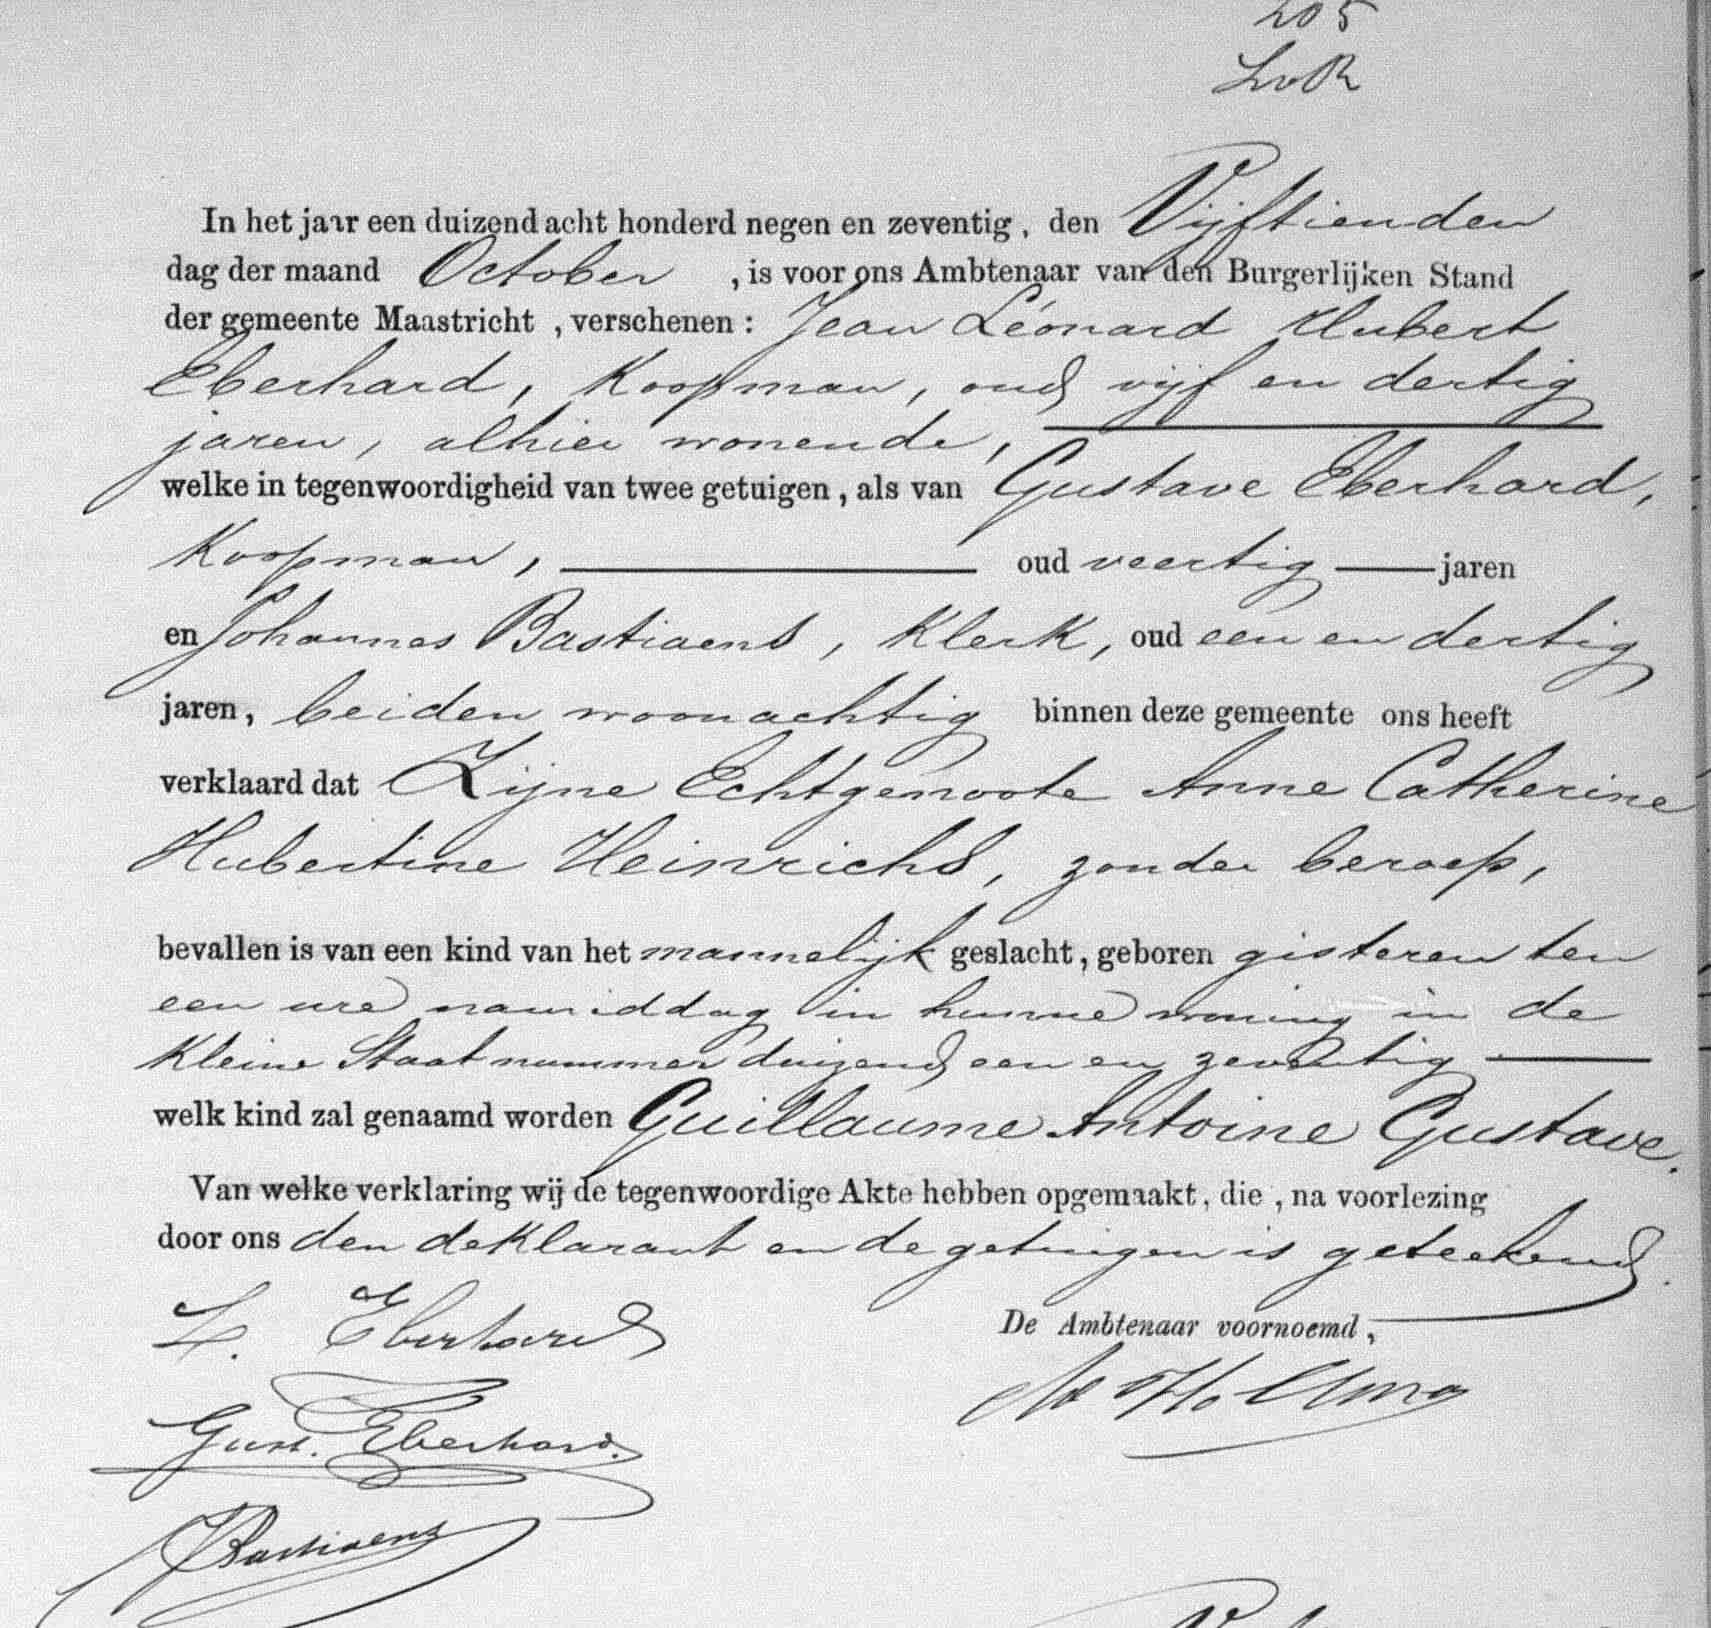 205
In het jaar een duizend acht honderd negen en zeventig, den Vijftienden
dag der maand October , is voor ons Ambtenaar van den Burgerlijken Stand
der gemeente Maastricht , verschenen : Jean Léonard Hubert
Eberhard, Koopman, oud vijf en dertig
jaren, alhier wonende,
welke in tegenwoordigheid van twee getuigen , als van Gustave Eberhard,
Koopman, oud veertig jaren
en Johannes Bastiaens, Klerk, oud een en dertig
jaren, beiden woonachtig binnen deze gemeente ons heeft
verklaard dat Zijne Echtgenoote Anne Catherine
Hubertine Heinrichs, zonder beroep,
bevallen is van een kind van het mannelijk geslacht, geboren gisteren ten
een ure namiddag in hunne woning in de
Kleine Staat nummer duizend een en zeventig
welk kind zal genaamd worden Guillaume Antoine Gustave.
Van welke verklaring wij de tegenwoordige Akte hebben opgemaakt, die , na voorlezing
door ons den deklarant en de getuigen is geteekend.
L. Eberhard
De Ambtenaar voornoemd,
Gust. Eberhard.
JBastiaens